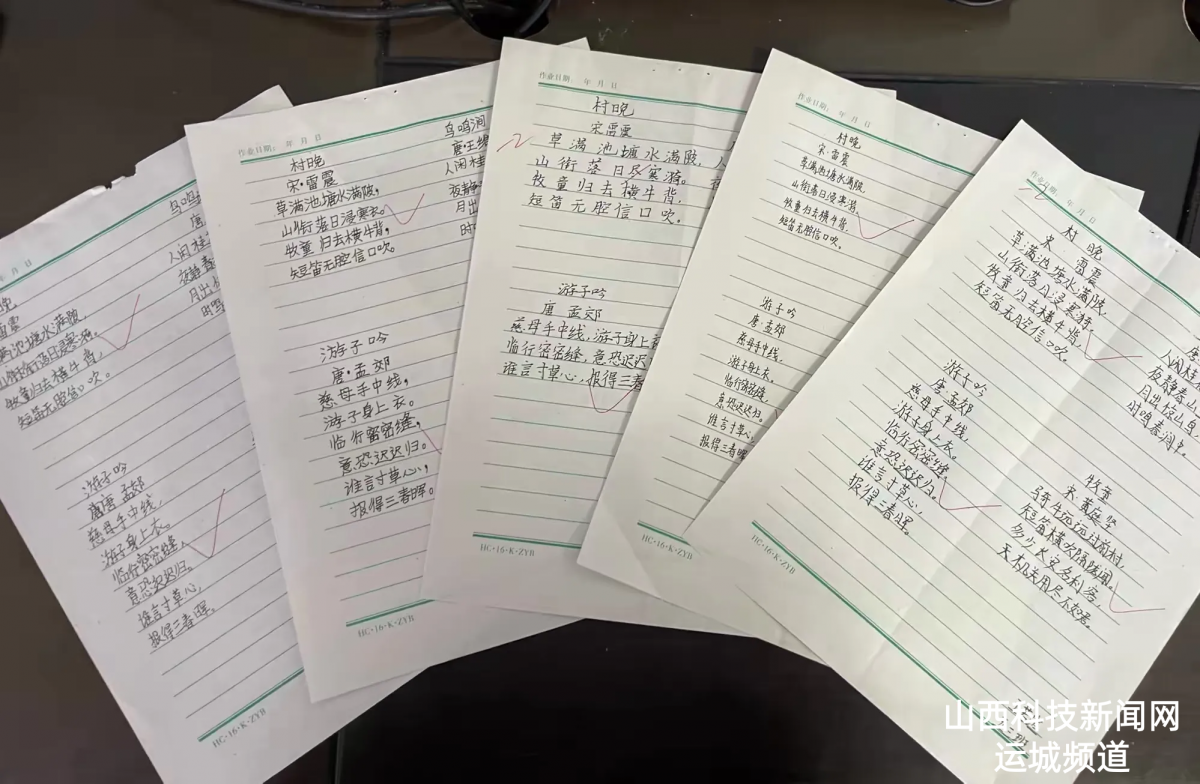 年 月 日
鸟鸣
唐
人闲桂
夜静春
月出
时鸣
晚
雷震
满池塘水满陂
牧童归去横牛背,
短笛无腔信口吹。
游子吟
唐 孟郊
慈母手中线,
游子身上衣。
临行密密缝,
意恐迟迟归。
谁言寸草心,
报得三春晖。
HC·16·K·ZYB
作业日期: 年 月 日
村晚
宋·雷震
草满池塘水满陂,
山衔落日浸寒
牧童归去横牛背,
短笛无腔信口吹。
鸟鸣涧
唐·王维
人闲桂
夜静
月出
时
游子吟
唐·孟郊
慈母手中线,
游子身上衣。
临行密密缝,
意恐迟迟归。
谁言寸草心,
报得三春晖。
HC·16·K·ZYB
作业日期: 年 月 日
村晚
宋雷震
草满池塘水满陂,
山衔落日
牧童归去横牛背,
短笛无腔信口吹。
游子吟
唐 孟郊
慈母手中线,游子身上
临行密密缝,意恐迟迟
谁言寸草心,报得三春
HC·16·K·ZYB
作业日期: 年 月 日
村晚
宋·雷震
草满池塘水满陂,
山衔落日浸寒漪,
牧童归去横牛背,
短笛无腔信口吹。
游子吟
唐 孟郊
慈母手中线,
游子身上衣。
临行密密缝,
意恐迟迟归。
谁言寸草心,
报得三春晖
HC·16·K·ZYB
作业日期: 年 月 日
村 晚
宋 雷震
草满池塘水满陂,
山衔落日浸寒漪,
牧童归去横牛背,
短笛无腔信口吹。
游子吟
唐 孟郊
慈母手中线,
游子身上衣。
临行密密缝,
意恐迟迟归。
谁言寸草心,
报得三春晖。
唐
人闲桂
夜静春山
月出惊山鸟
时鸣春涧中。
牧童
宋 黄庭坚
骑牛远远过前村,
短笛横吹隔陇闻。
多少长安名利客,
天机关用尽不如君。
HC·16·K·ZYB
山西科技新闻网
运城频道